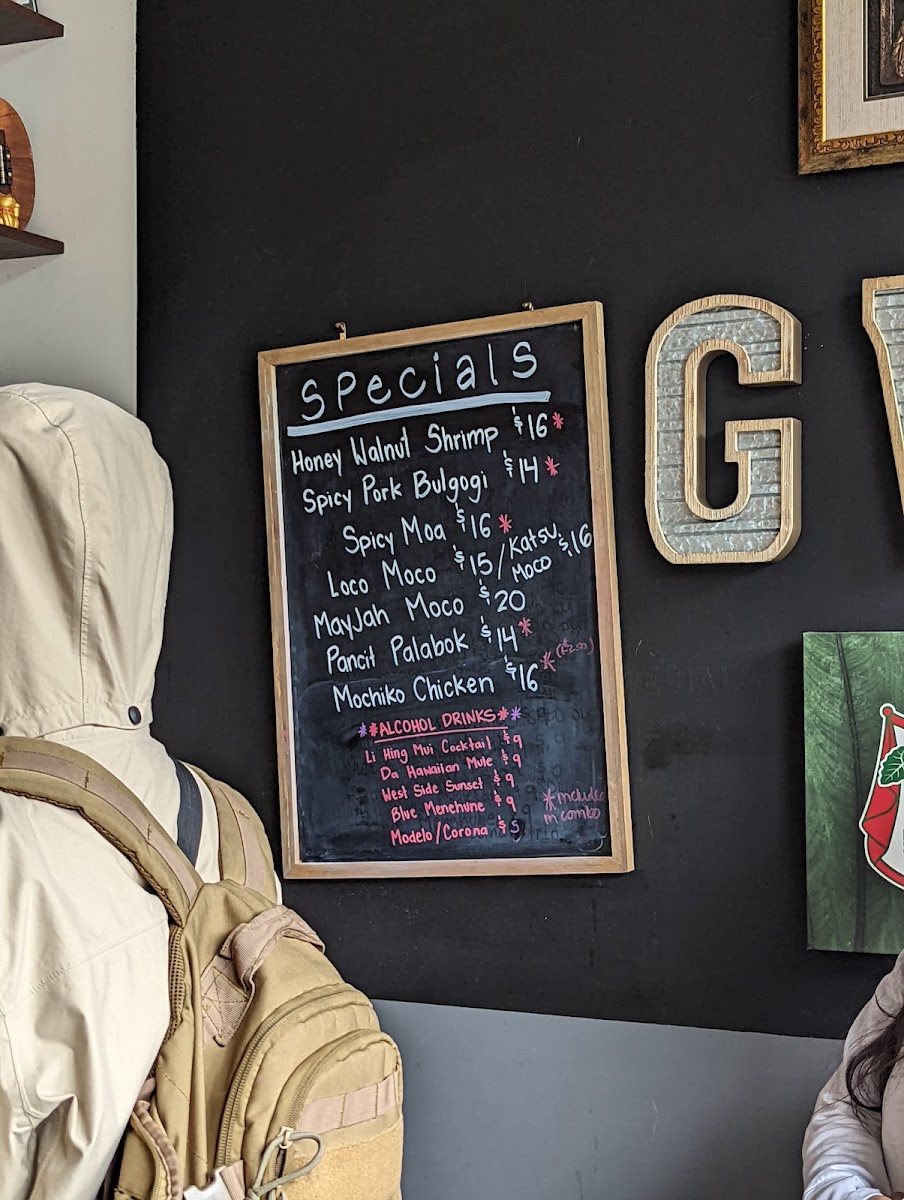 Specials
Honey Walnut Shrimp $16 *
Spicy Pork Bulgogi $14 *
Spicy Moa $16 *
Loco Moco $15 / Katsu Moco $16
MayJah Moco $20
Pancit Palabok $14 *
Mochiko Chicken $16 * (+$2.00)
**ALCOHOL DRINKS**
Li Hing Mui Cocktail $9
Da Hawaiian Mule $9
West Side Sunset $9
Blue Menehune $9
Modelo/Corona $5
* included
in combo
G